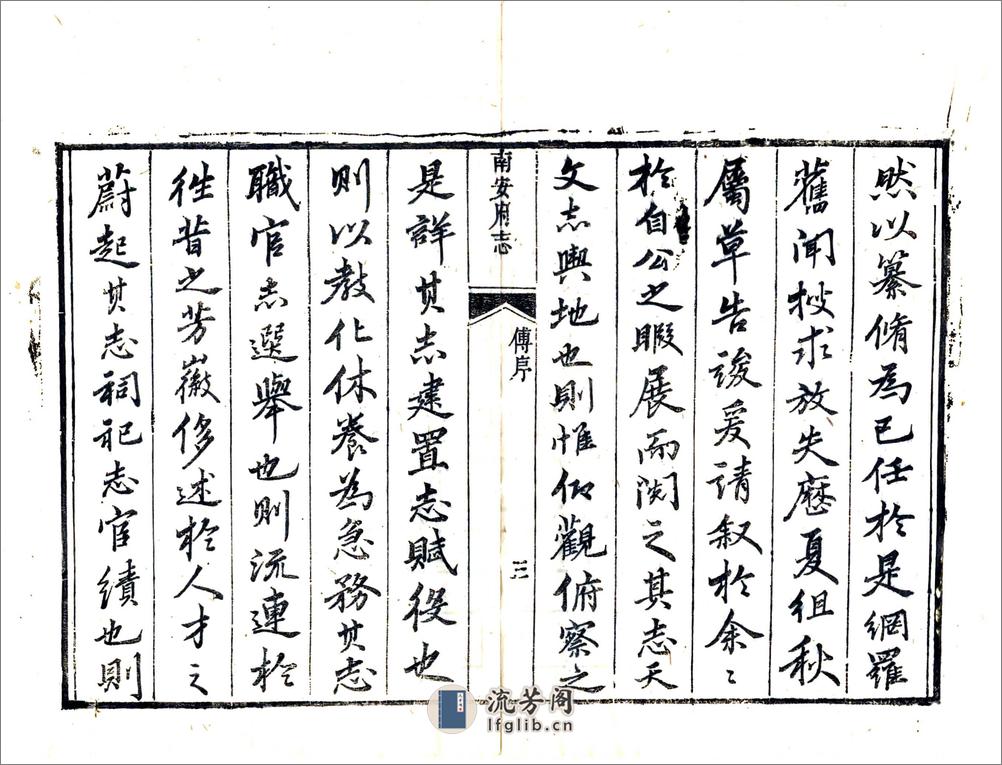 然以纂脩為己任於是網羅
舊聞搜求放失歷夏徂秋
屬草告竣爰請叙於余〻
於自公之暇展而閱之其志天
文志輿地也則惟仰觀俯察之
南安府志
傳序
三
是詳其志建置志賦役也
則以教化休養為急務其志
職官志選舉也則流連於
徃昔之芳徽侈述於人才之
蔚起其志祠祀志宦績也則
流芳阁
lfglib.cn